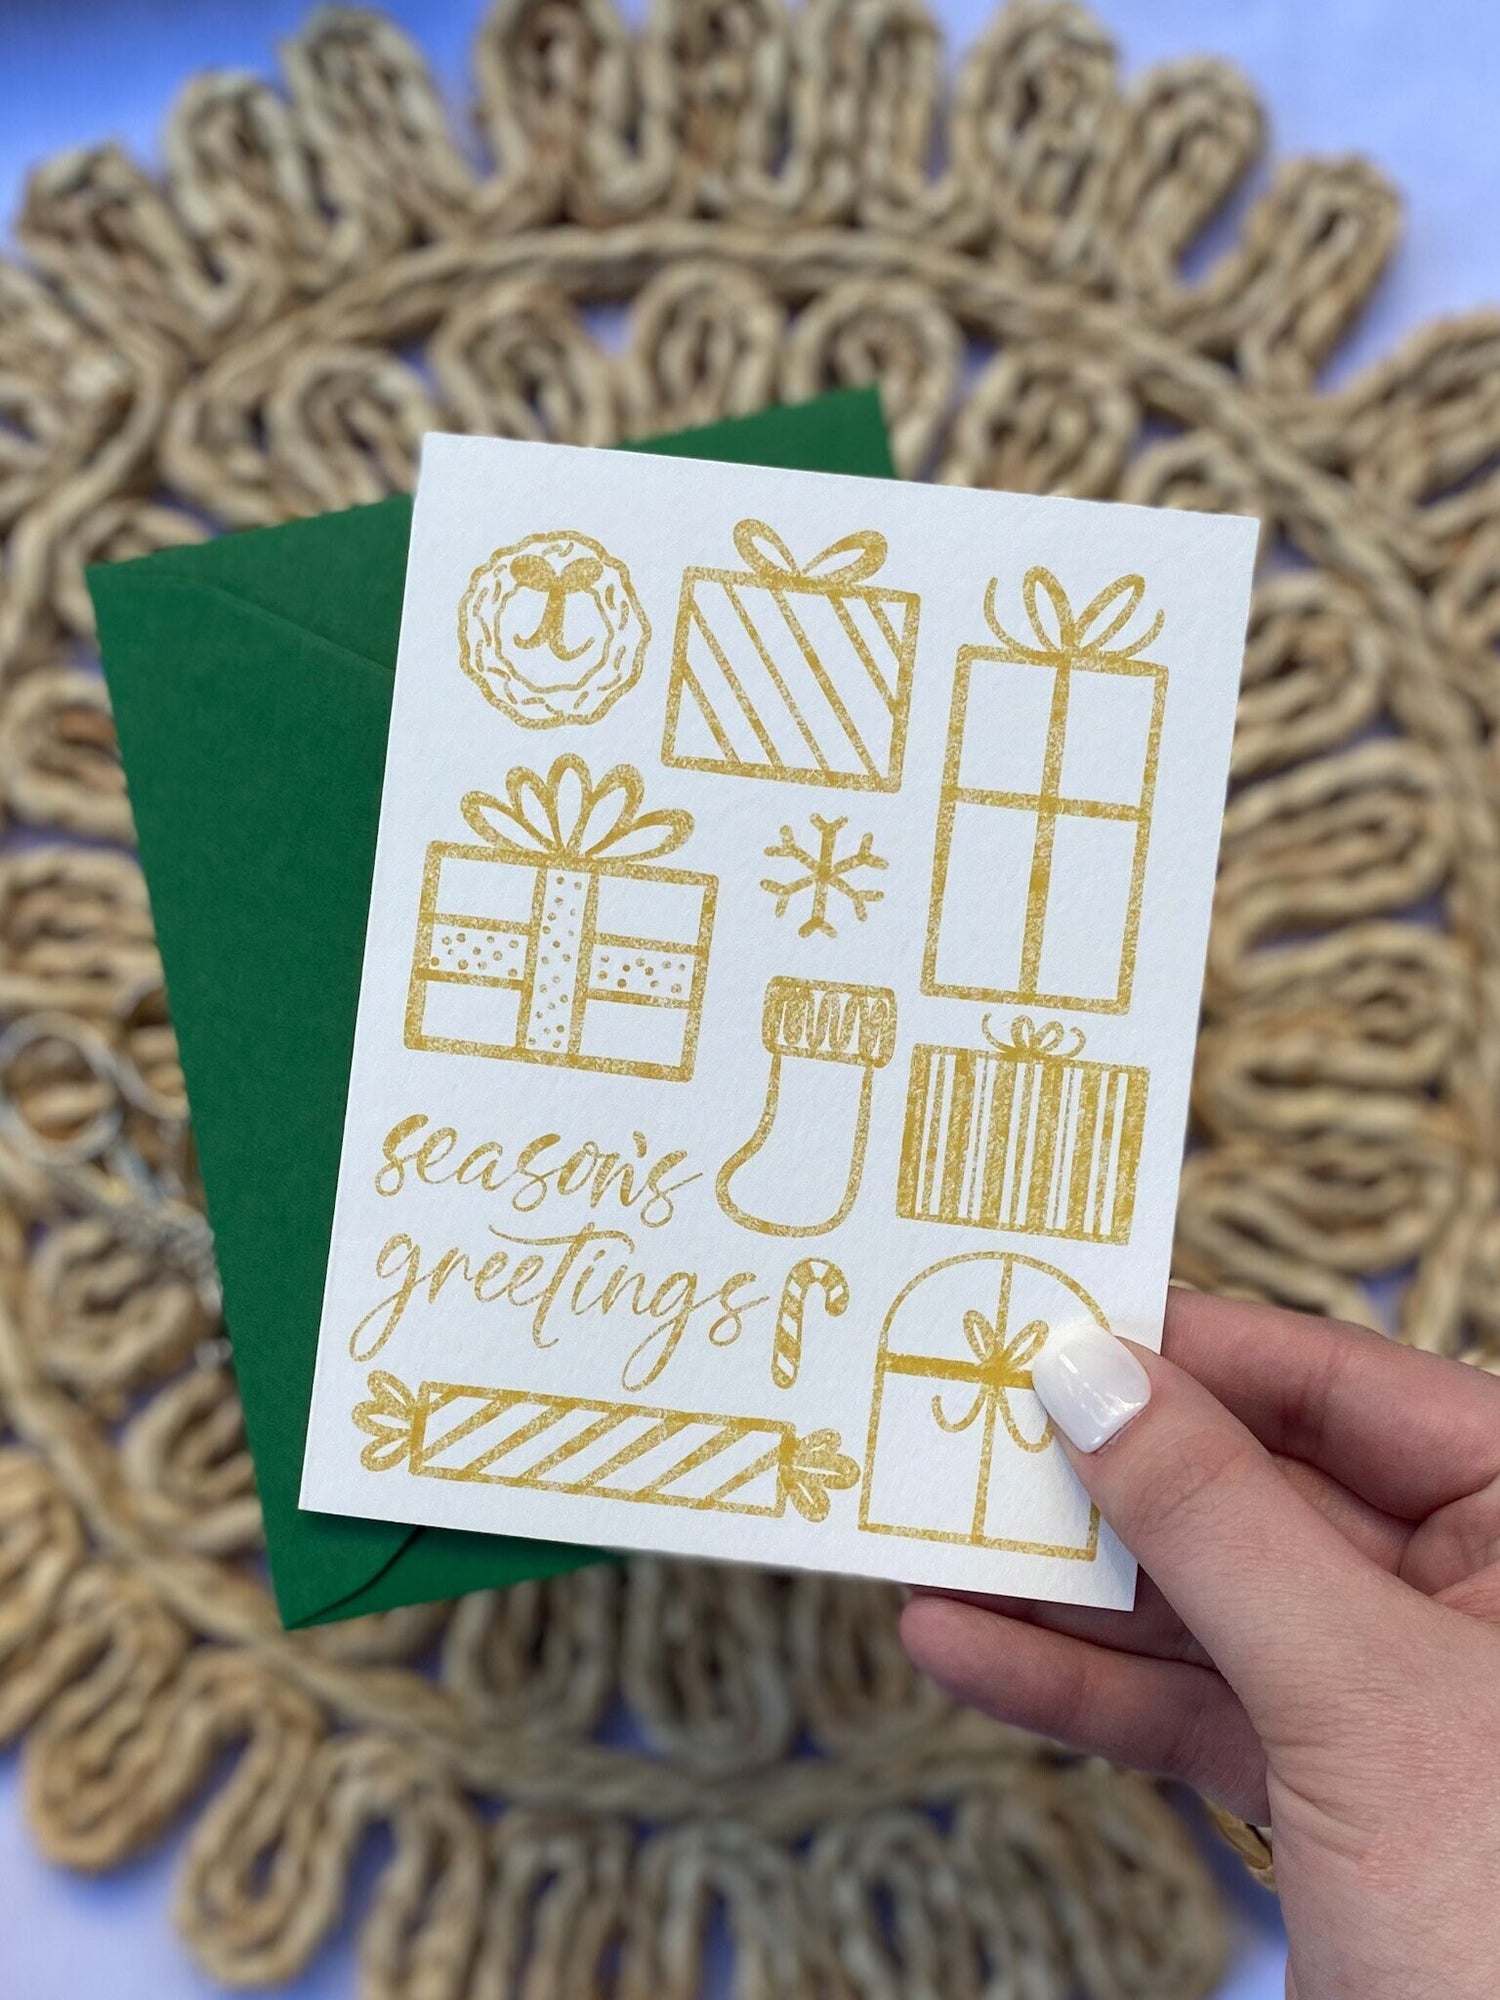 season's
greetings